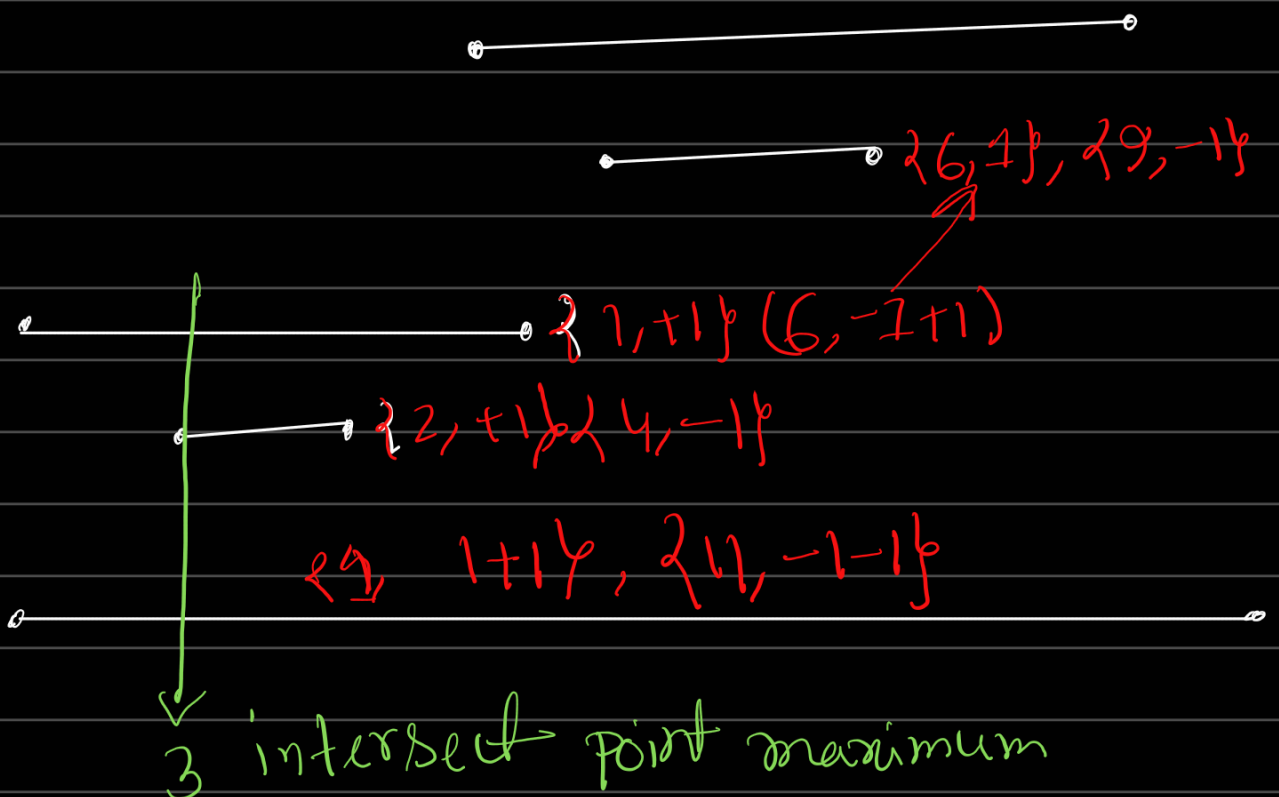 {6,1}, {9,-1}
{1,+1} (6,-1+1)
{2,+1} {4,-1}
{1, 1+1}, {11,-1-1}
3 intersect point maximum